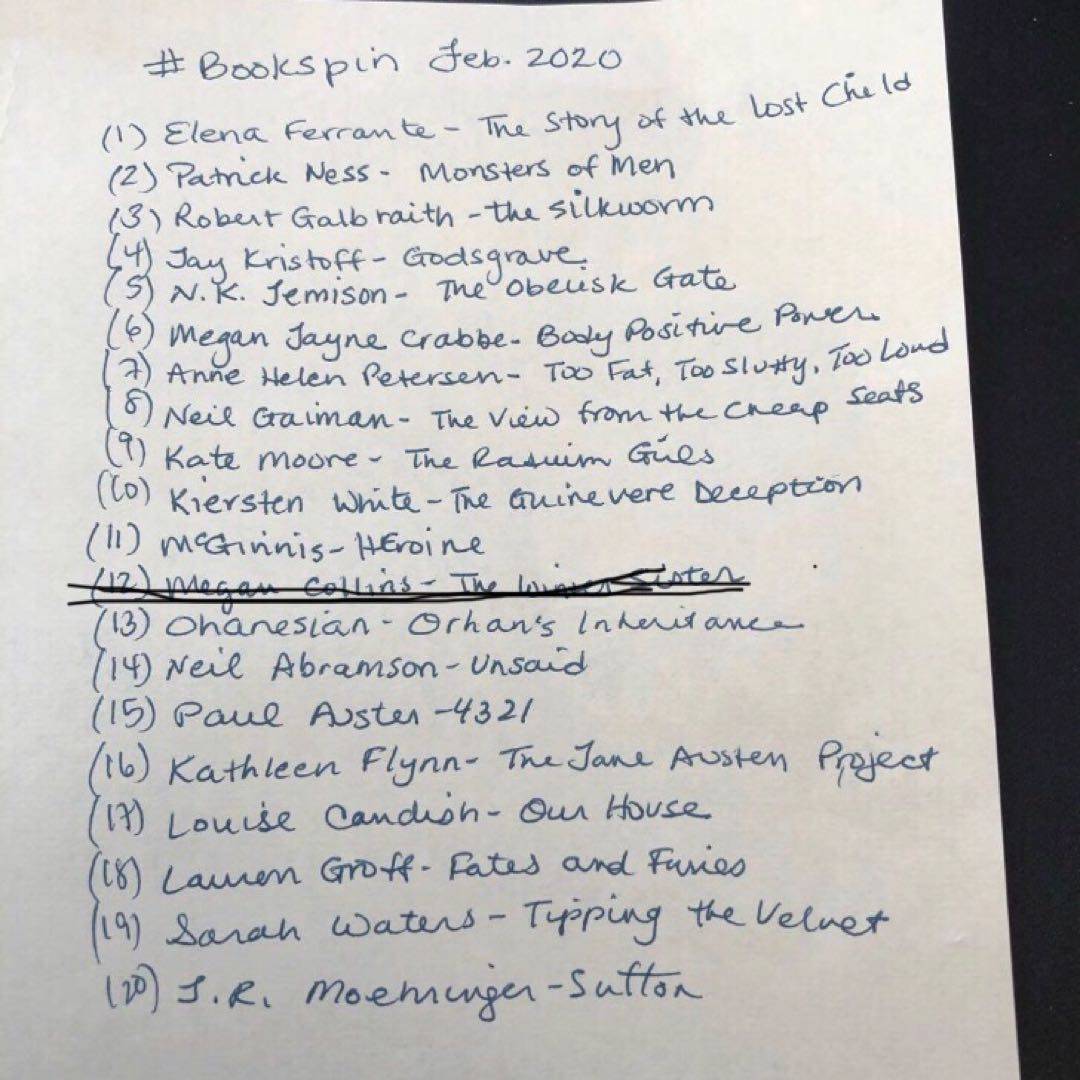 # Bookspin Feb. 2020
(1) Elena Ferrante - The Story of the Lost Child
(2) Patrick Ness - Monsters of Men
(3) Robert Galbraith - the Silkworm
(4) Jay Kristoff - Godsgrave
(5) N.K. Jemison - The Obelisk Gate
(6) Megan Jayne Crabbe - Body Positive Power
(7) Anne Helen Petersen - Too Fat, Too Slutty, Too Loud
(8) Neil Gaiman - The View from the Cheap Seats
(9) Kate Moore - The Radium Girls
(10) Kiersten White - The Guinevere Deception
(11) McGinnis - Heroine
(12) Megan Collins - The Winter Sister
(13) Ohanesian - Orhan's Inheritance
(14) Neil Abramson - Unsaid
(15) Paul Auster - 4321
(16) Kathleen Flynn - The Jane Austen Project
(17) Louise Candish - Our House
(18) Lauren Groff - Fates and Furies
(19) Sarah Waters - Tipping the Velvet
(20) J.R. Moehringer - Sutton